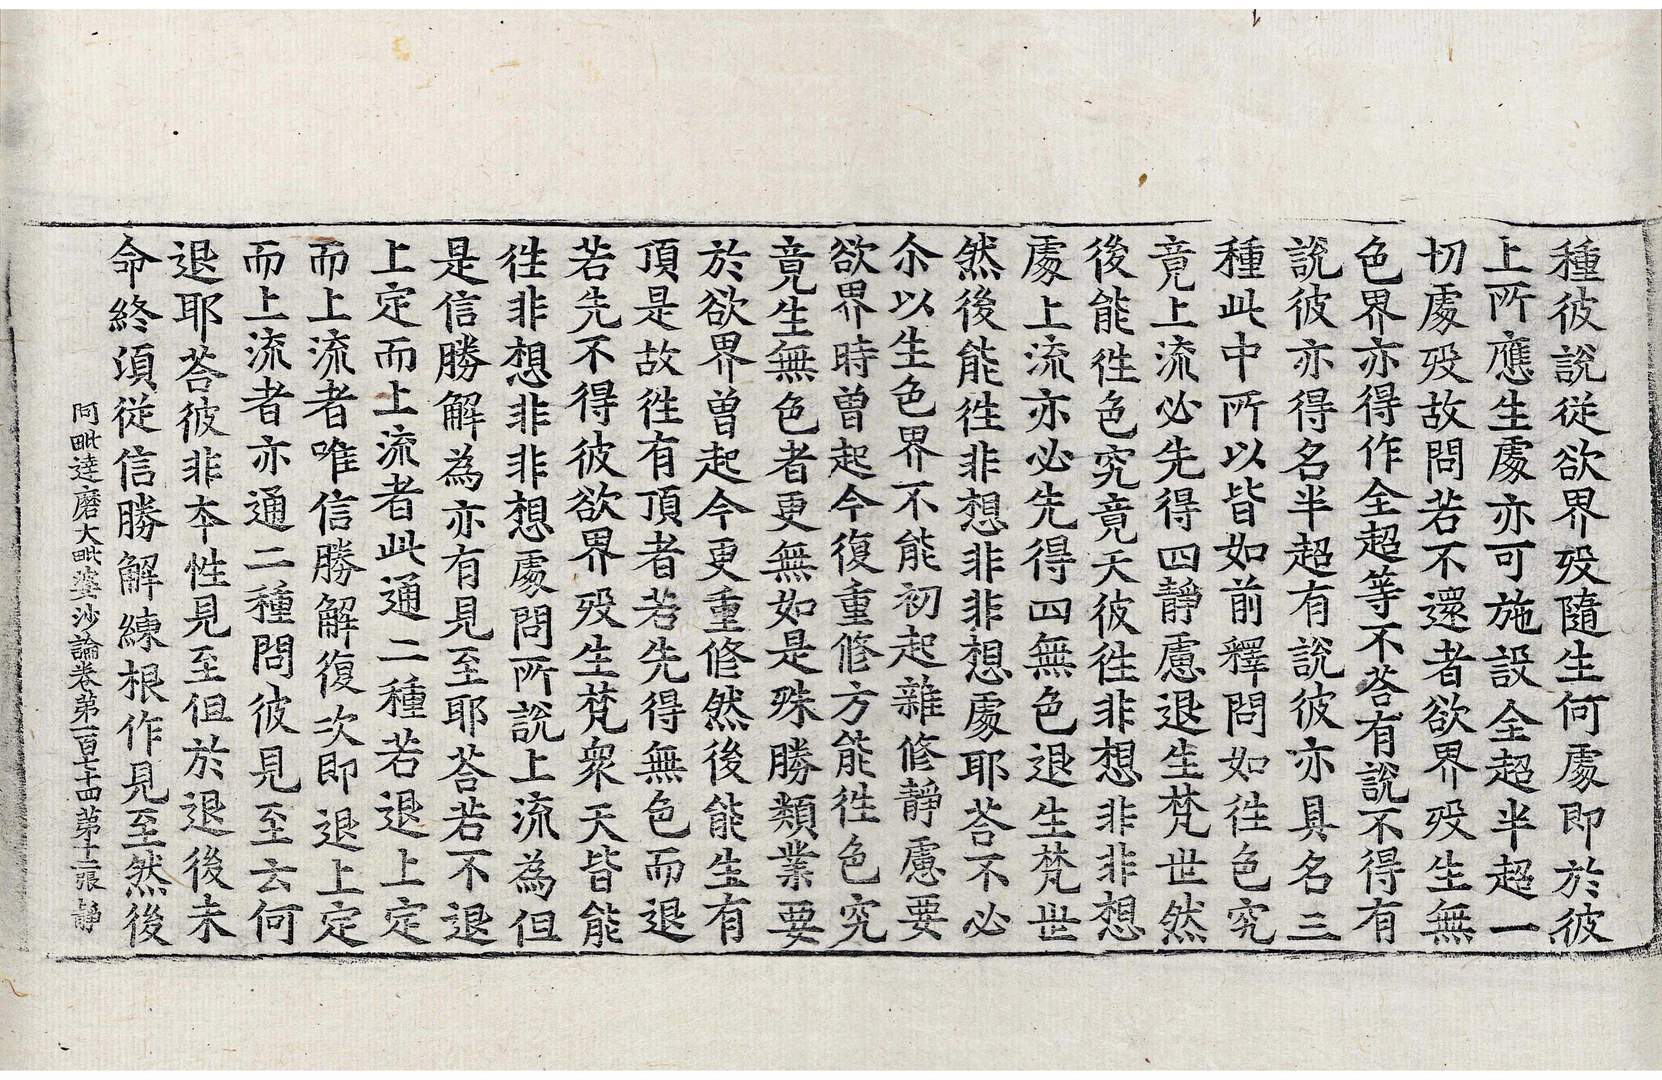 種彼說從欲界歿隨生何處即於彼
上所應生處亦可施設全超半超一
切處歿故問若不還者欲界歿生無
色界亦得作全超等不荅有說不得有
說彼亦得名半超有說彼亦具名三
種此中所以皆如前釋問如徃色究
竟上流必先得四靜慮退生梵世然
後能徃色究竟天彼徃非想非非想
處上流亦必先得四無色退生梵世
然後能徃非想非非想處耶荅不必
尒以生色界不能初起雜修靜慮要
欲界時曾起今復重修方能徃色究
竟生無色者更無如是殊勝類業要
於欲界曾起今更重修然後能生有
頂是故徃有頂者若先得無色而退
若先不得彼欲界歿生梵衆天皆能
徃非想非非想處問所說上流為但
是信勝解為亦有見至耶荅若不退
上定而上流者此通二種若退上定
而上流者唯信勝解復次即退上定
而上流者亦通二種問彼見至云何
退耶荅彼非本性見至但於退後未
命終須從信勝解練根作見至然後
阿毗達磨大毗婆沙論卷第一百七十四第十三張 靜